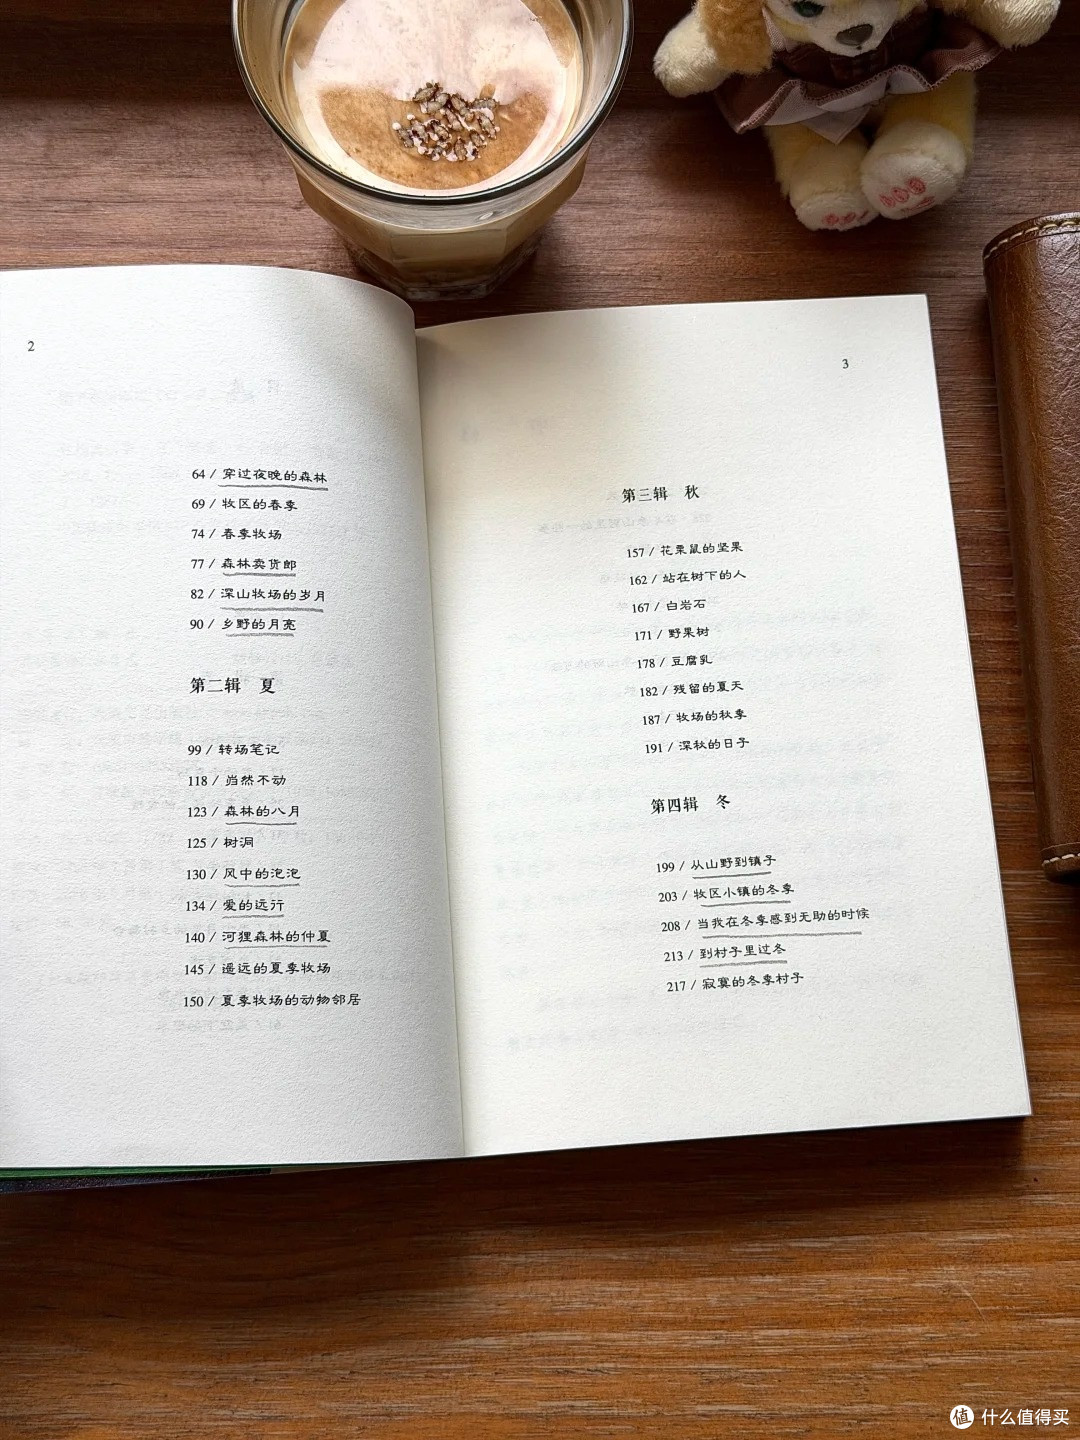 2
64 / 穿过夜晚的森林
69 / 牧区的春季
74 / 春季牧场
77 / 森林卖货郎
82 / 深山牧场的岁月
90 / 乡野的月亮
第二辑 夏
99 / 转场笔记
118 / 岿然不动
123 / 森林的八月
125 / 树洞
130 / 风中的泡泡
134 / 爱的远行
140 / 河狸森林的仲夏
145 / 遥远的夏季牧场
150 / 夏季牧场的动物邻居
3
第三辑 秋
157 / 花栗鼠的坚果
162 / 站在树下的人
167 / 白岩石
171 / 野果树
178 / 豆腐乳
182 / 残留的夏天
187 / 牧场的秋季
191 / 深秋的日子
第四辑 冬
199 / 从山野到镇子
203 / 牧区小镇的冬季
208 / 当我在冬季感到无助的时候
213 / 到村子里过冬
217 / 寂寞的冬季村子
值 什么值得买